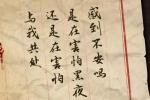 感到不安吗
是在害怕黑夜
还是在害怕
与我共处